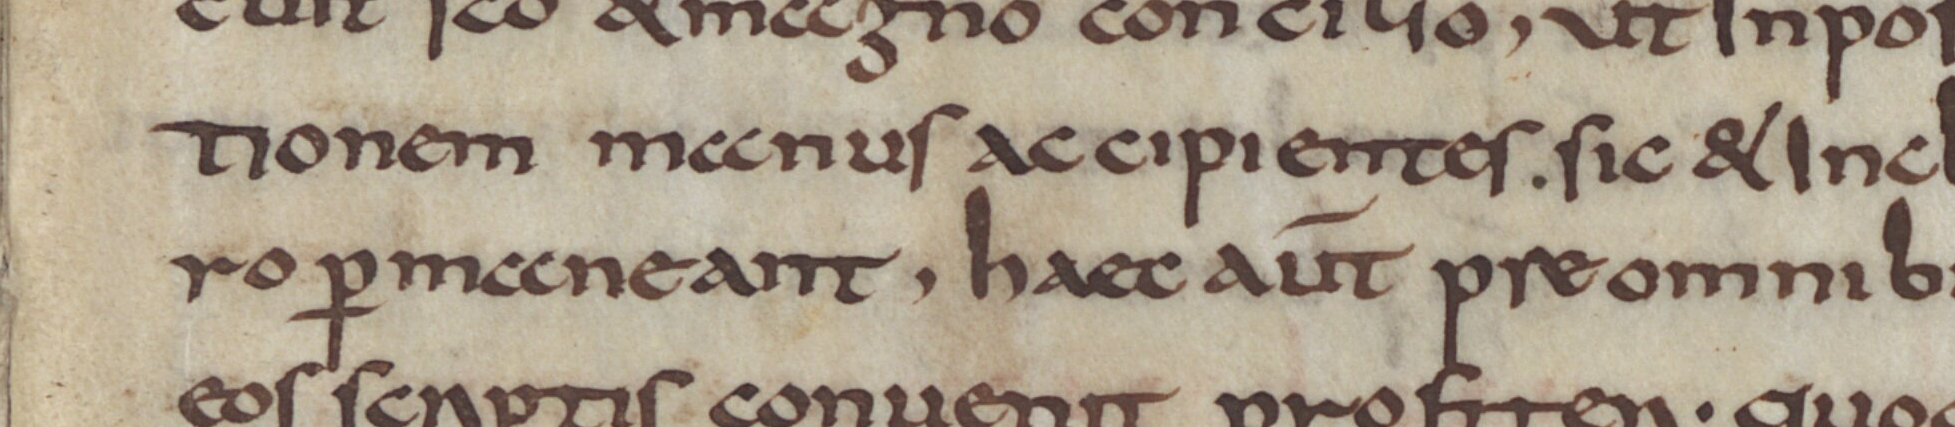 cuit sc̄o & magno concilio, ut Inpos
tionem manus accipientes. sic & Incl
ro p̲maneant, haec aut̄ pre omnib
eos scriptis convenit profiteri. quo